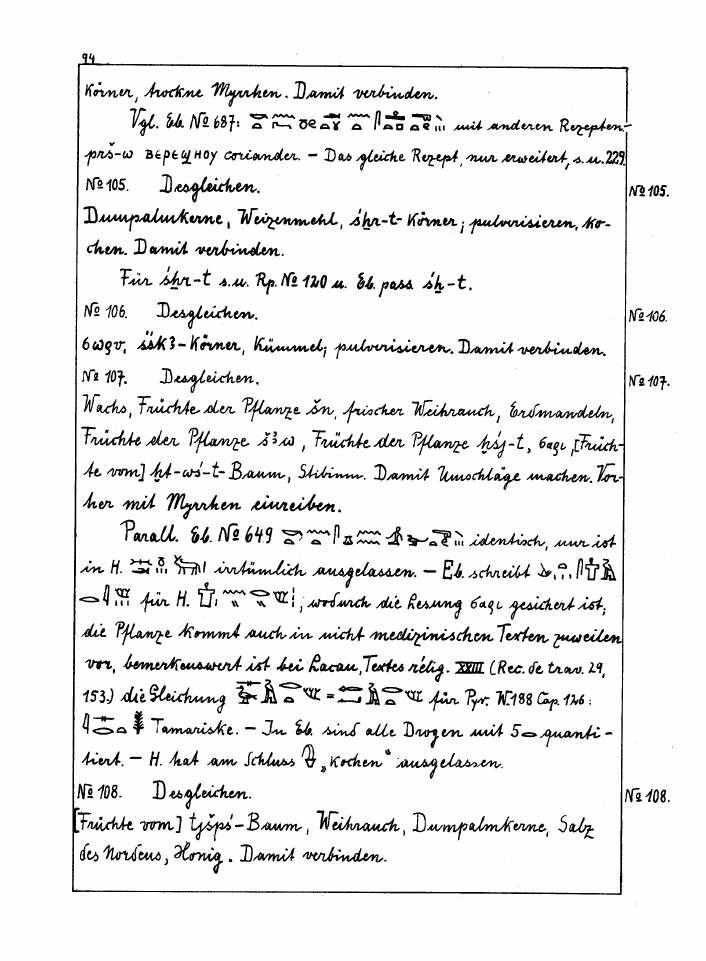 94
Körner, trockne Myrrhen. Damit verbinden.
Vgl. Eb. No 687: mit anderen Rezepten.
prš-w ⲃⲉⲣⲉϣⲏⲟⲩ coriander. – Das gleiche Rezept, nur erweitert, s.u. 229.
No 105. Desgleichen. No 105.
Dumpalmkerne, Weizenmehl, śḫr-t-Körner; pulverisieren, ko-
chen. Damit verbinden.
Für śḫr-t s.u. Rp. No 120 u. Eb. pass śḫ-t.
No 106. Desgleichen. No 106.
šśkꜣ-Körner, Kümmel; pulverisieren. Damit verbinden.
No 107. Desgleichen. No 107.
Wachs, Früchte der Pflanze šn, frischer Weihrauch, Erdmandeln,
Früchte der Pflanze šꜣw, Früchte der Pflanze ḫśj-t, [Früch-
te vom] ḫt-wś-t-Baum, Stibium. Damit Umschläge machen. Vor-
her mit Myrrhen einreiben.
Parall. Eb. No 649 identisch, nur ist
in H. irrtümlich ausgelassen. – Eb. schreibt
für H. , wodurch die Lesung gesichert ist;
die Pflanze kommt auch in nicht medizinischen Texten zuweilen
vor, bemerkenswert ist bei Lacau, Textes rélig. XXIII (Rec. de trav. 29,
153.) die Gleichung = für Pyr. W. 188 Cap. 126:
Tamariske. – In Eb. sind alle Drogen mit 5 quanti-
tiert. – H. hat am Schluss „kochen“ ausgelassen.
No 108. Desgleichen. No 108.
[Früchte vom] tjšpś-Baum, Weihrauch, Dumpalmkerne, Salz
des Nordens, Honig. Damit verbinden.